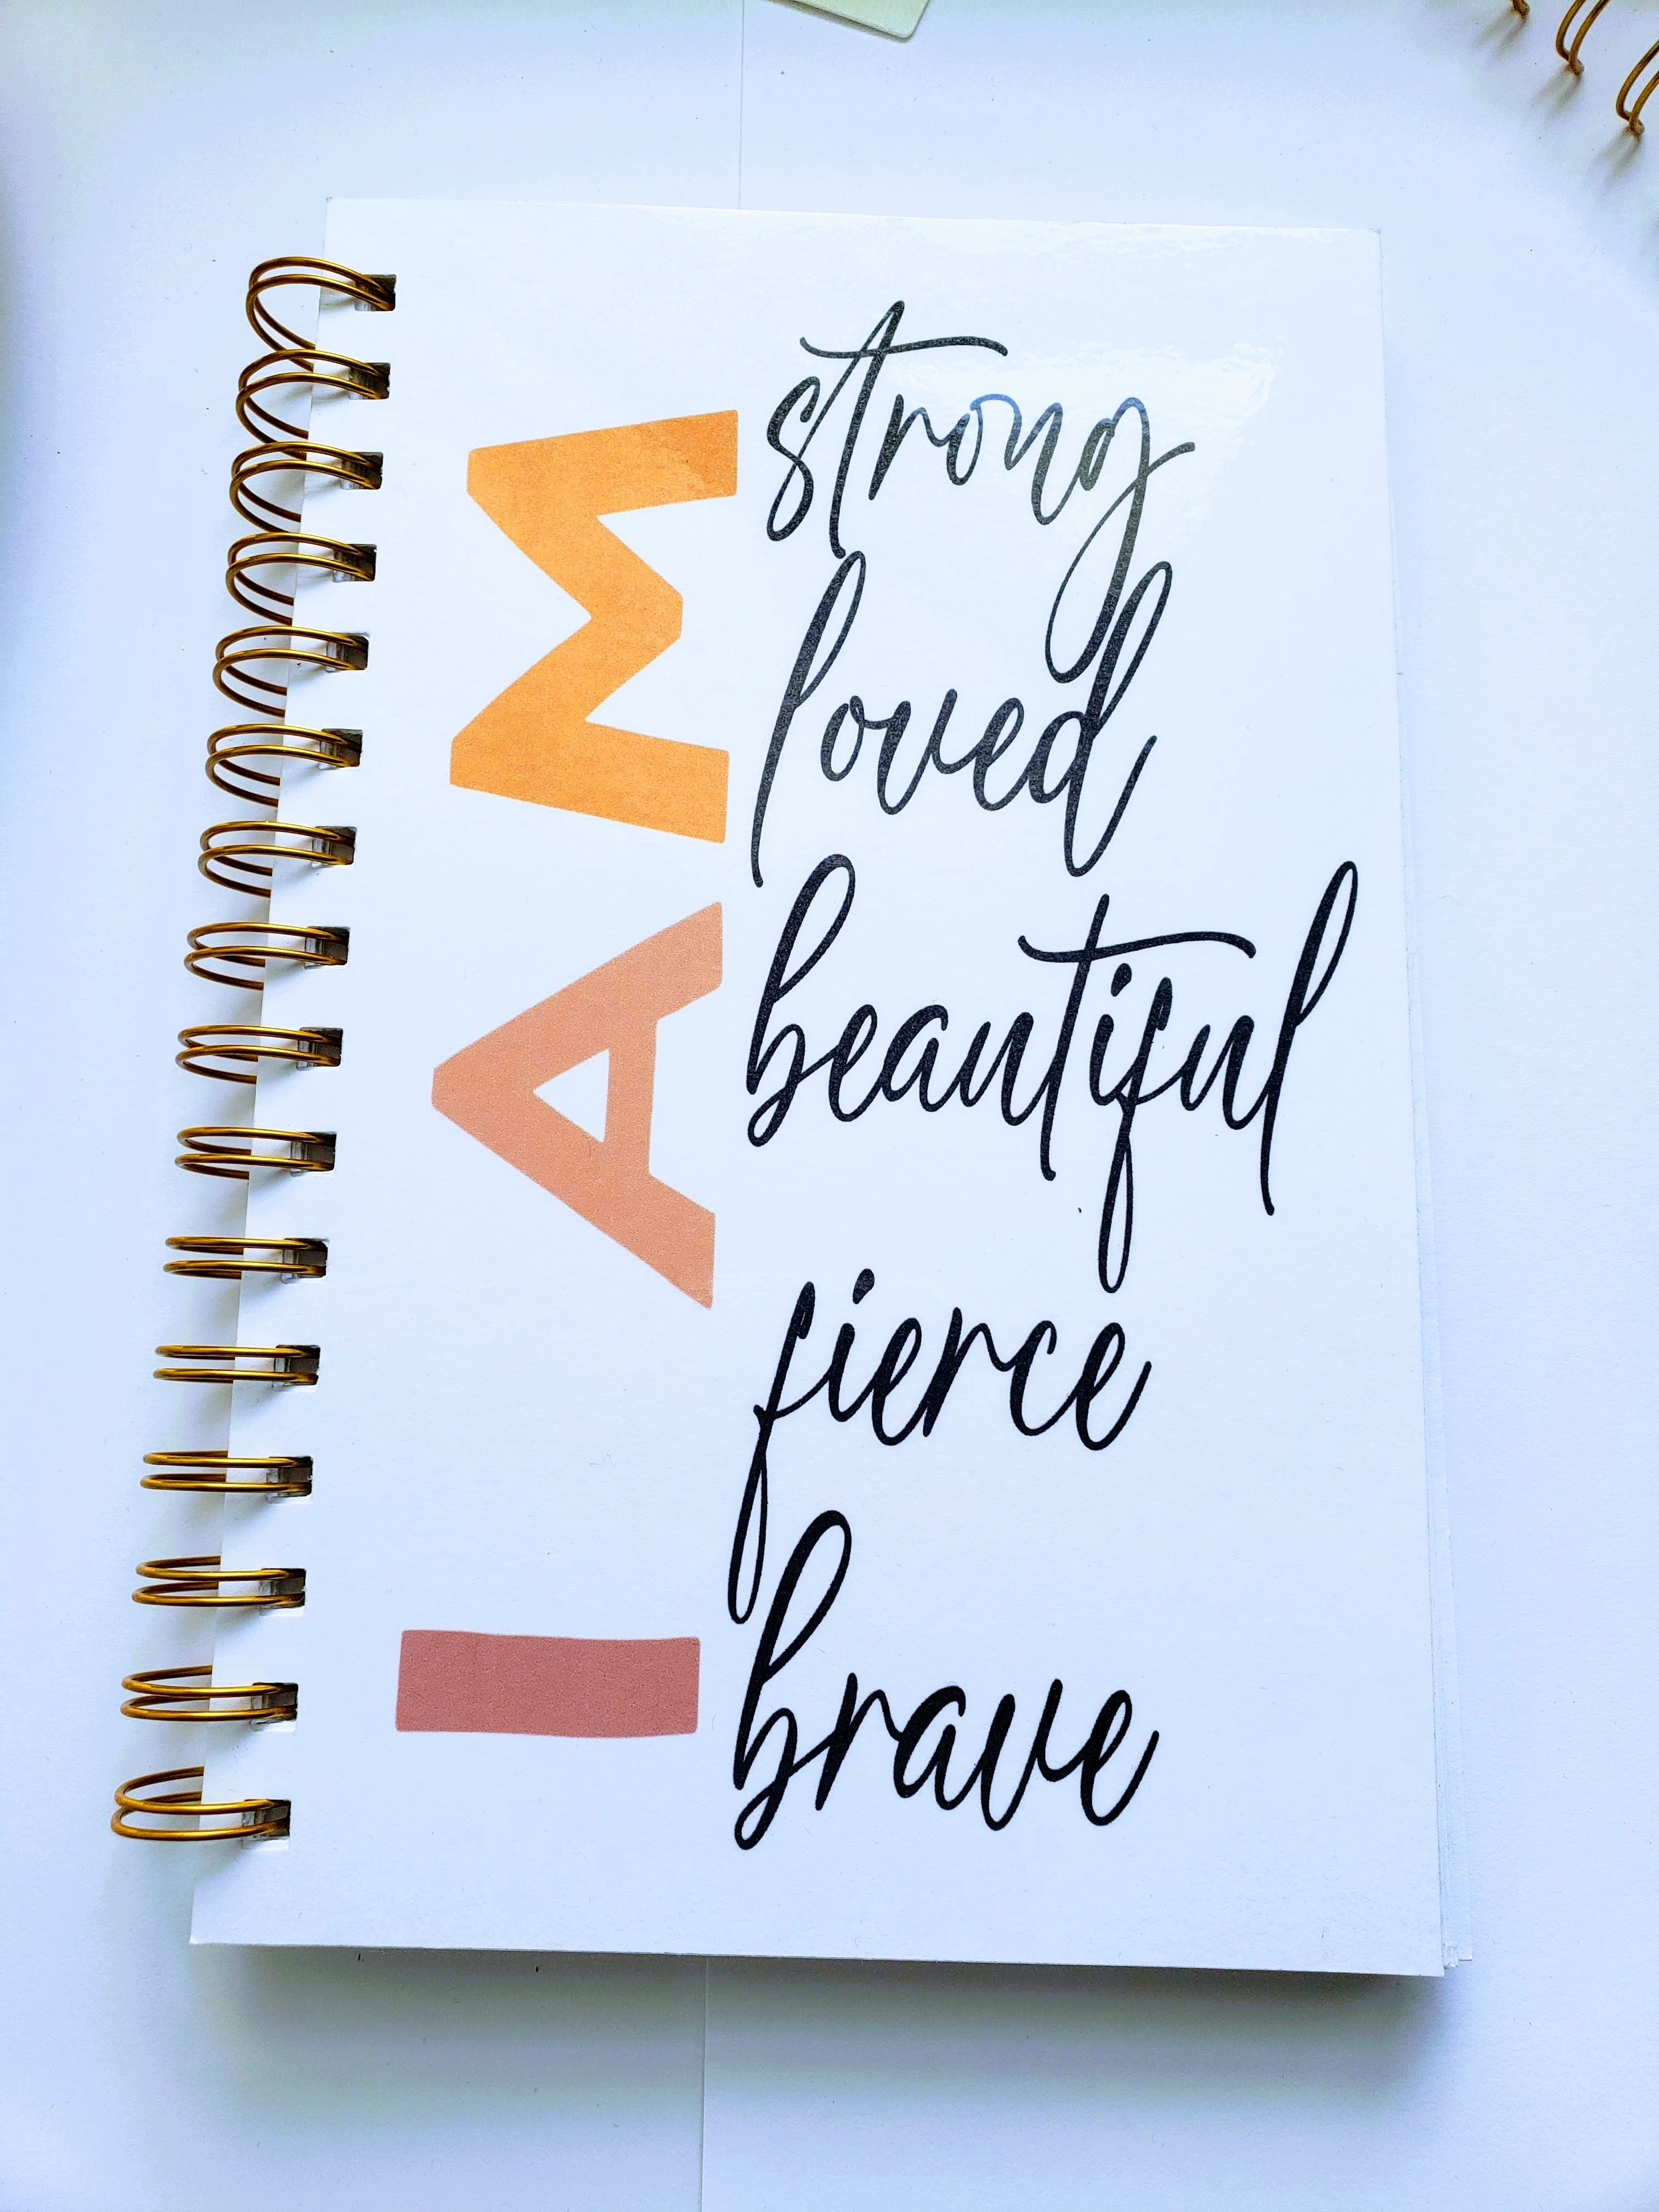 I AM
strong
loved
beautiful
fierce
brave